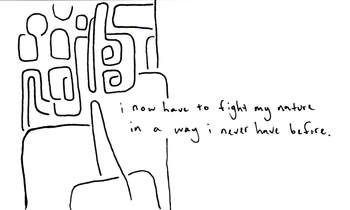 i now have to fight my nature
in a way i never have before.